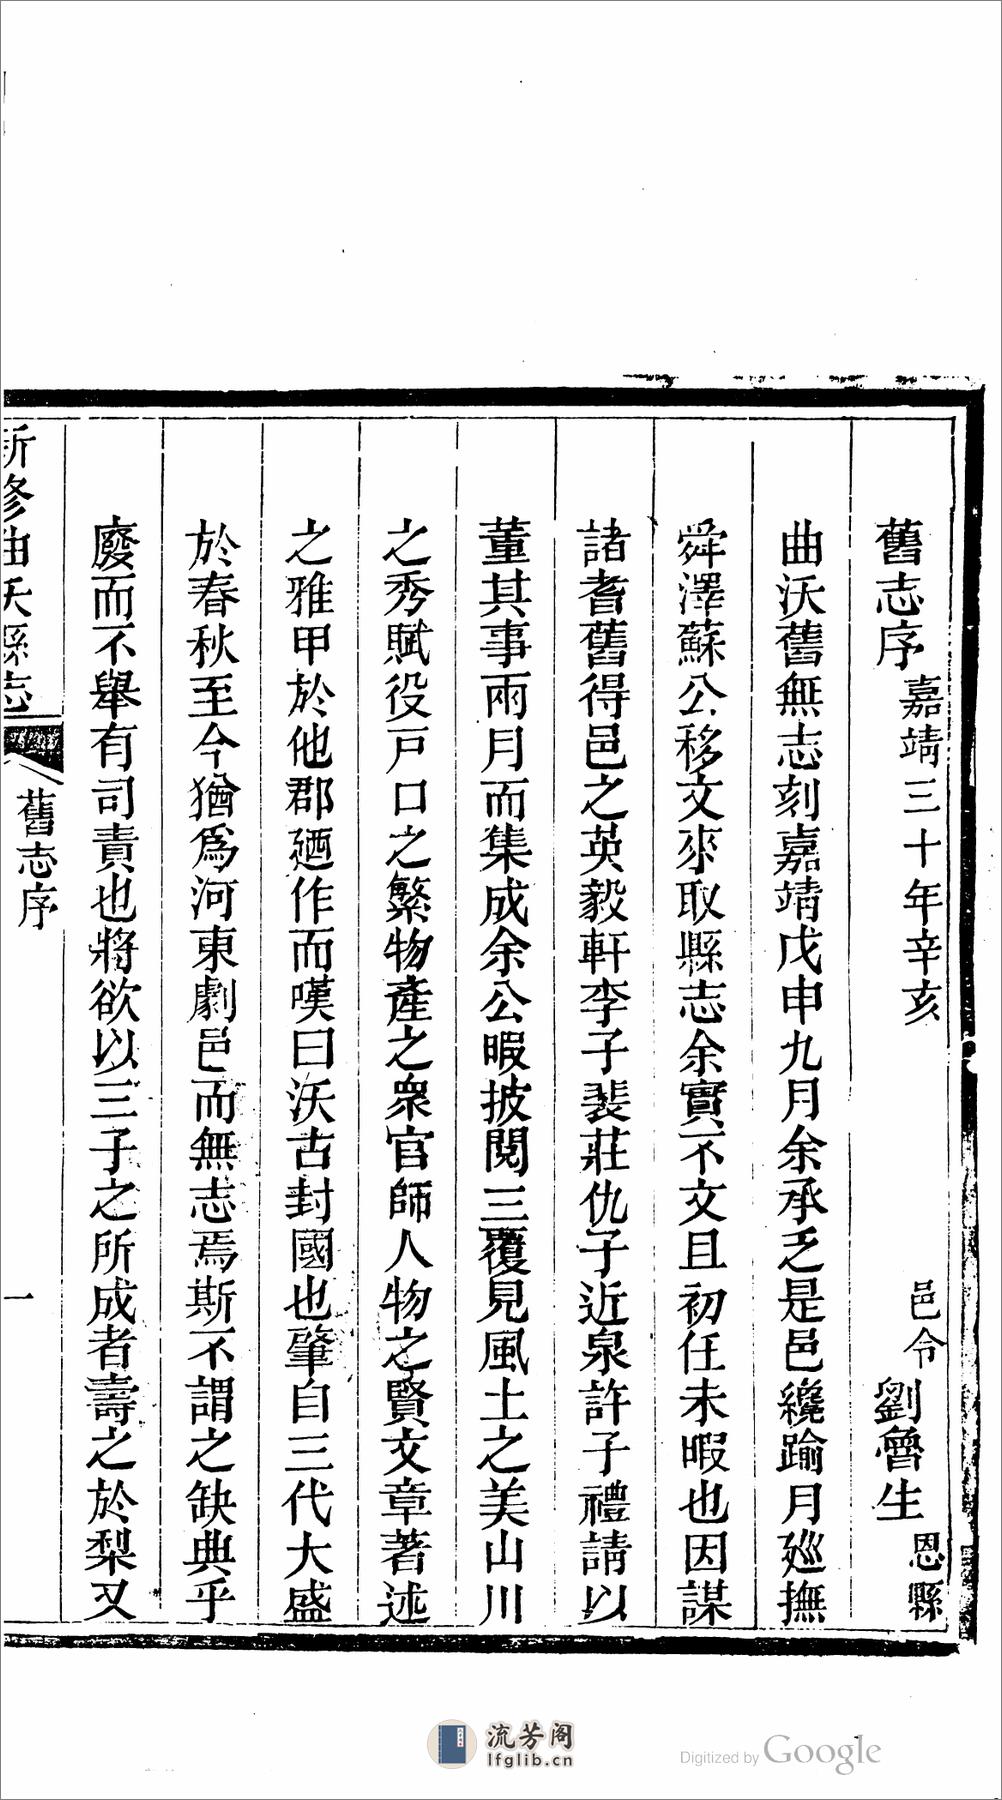 舊志序嘉靖三十年辛亥 邑令劉魯生恩縣
曲沃舊無志刻嘉靖戊申九月余承乏是邑纔踰月廵撫
舜澤蘇公移文來取縣志余實不文且初任未暇也因謀
諸耆舊得邑之英毅軒李子裴莊仇子近泉許子禮請以
董其事兩月而集成余公暇披閱三覆見風土之美山川
之秀賦役戸口之繁物產之衆官師人物之賢文章著述
之雅甲於他郡廼作而嘆曰沃古封國也肇自三代大盛
於春秋至今猶爲河東劇邑而無志焉斯不謂之缺典乎
廢而不舉有司責也將欲以三子之所成者壽之於梨又
新修曲沃縣志 舊志序 一
流芳阁
lfglib.cn
Digitized by Google